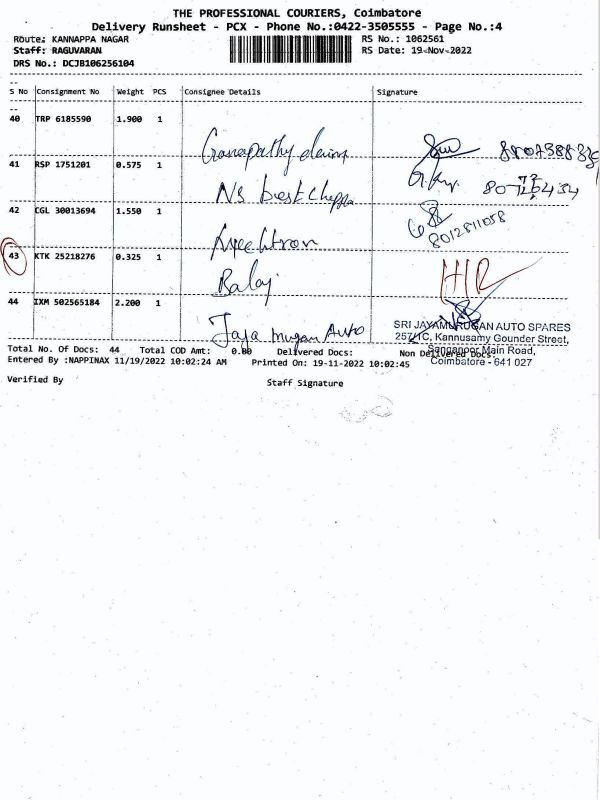 THE PROFESSIONAL COURIERS, Coimbatore
Delivery Runsheet - PCX - Phone No.:0422-3505555 - Page No.:4
Route: KANNAPPA NAGAR RS No.: 1062561
Staff: RAGUVARAN RS Date: 19-Nov-2022
DRS No.: DCJB106256104
S No Consignment No Weight PCS Consignee Details Signature
40 TRP 6185590 1.900 1
Ganapathy
41 RSP 1751201 0.575 1
NS best
42 CGL 30013694 1.550 1
8012811058
43 KTK 25218276 0.325 1
Balaj
44 IXM 502565184 2.200 1
Jaya Murugan Auto
SRI JAYAMURUGAN AUTO SPARES
257/1C, Kannusamy Gounder Street,
Sanganoor Main Road,
Coimbatore - 641 027
Total No. Of Docs: 44 Total COD Amt: 0.00 Delivered Docs: Non Delivered Docs:
Entered By :NAPPINAX 11/19/2022 10:02:24 AM Printed On: 19-11-2022 10:02:45
Verified By Staff Signature